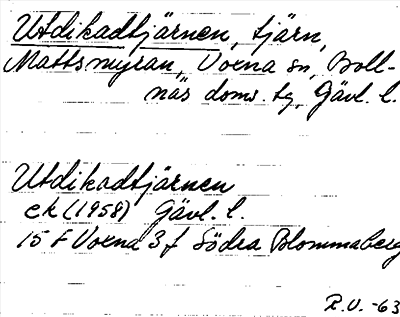 Utdikadtjärnen, tjärn,
Mattsmyran, Voxna sn, Boll-
näs doms. tg, Gävl. l.
Utdikadtjärnen
ek (1958) Gävl. l.
15 F Voxna 3 f Södra Blommaberg
R.U. -63